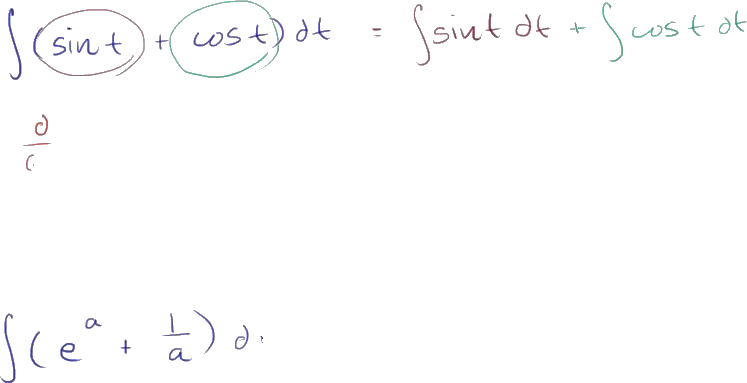 ∫(sin t + cos t) dt = ∫sin t dt + ∫cos t dt
d
—
∫(e^a + 1/a) d